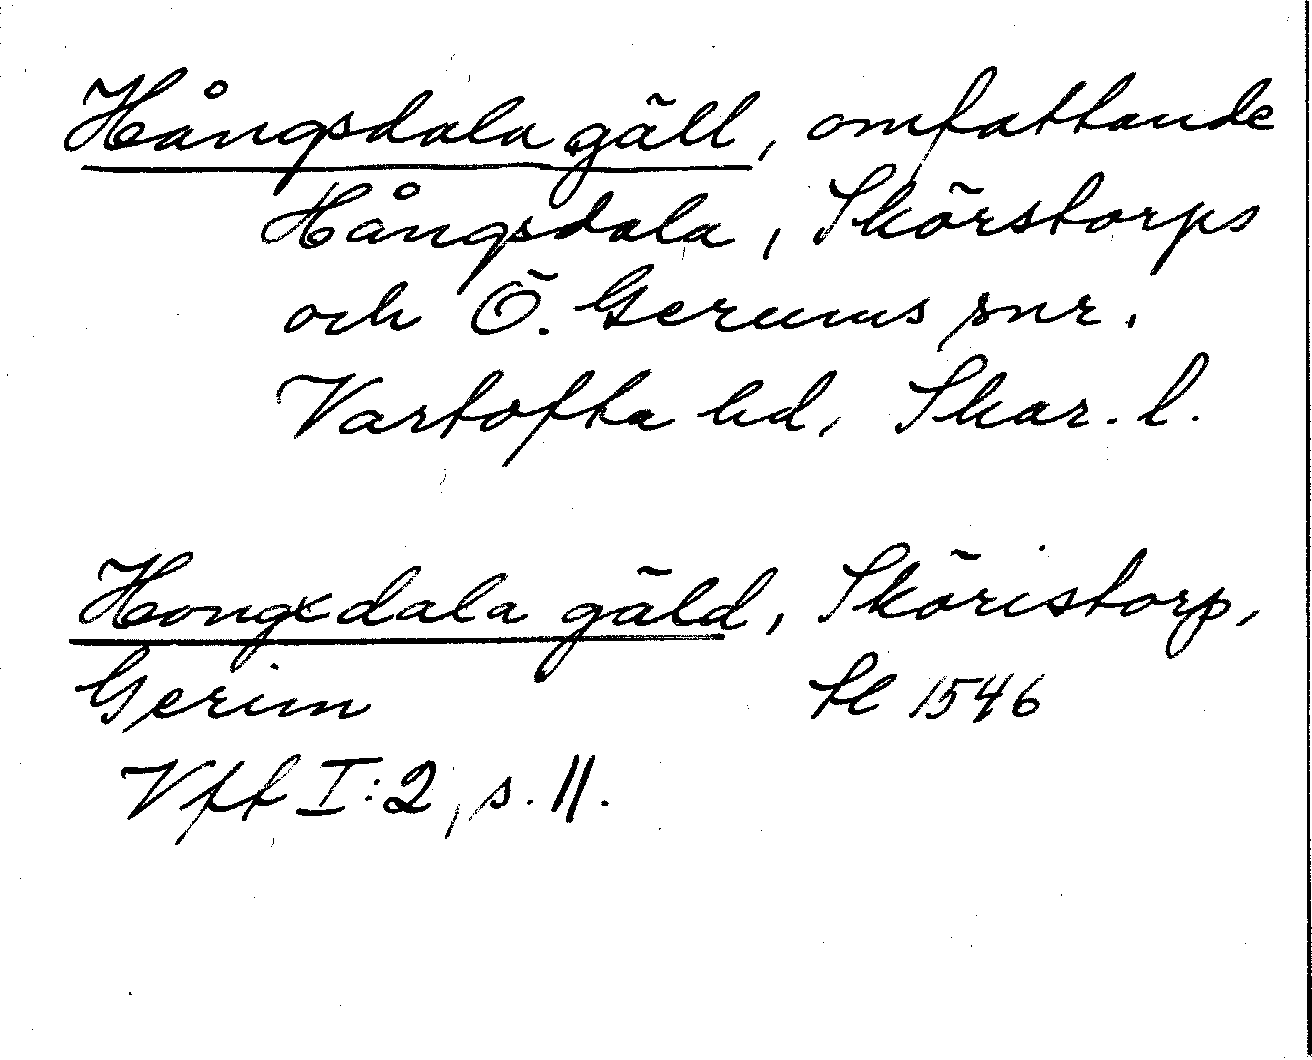 Hångsdala gäll, omfattande
Hångsdala, Skörstorps
och Ö. Gerums snr.
Vartofta hd, Skar. l.
Hongxdala gäld, Sköristorp,
Gerim Sl 1546
Vft I:2, s. 11.